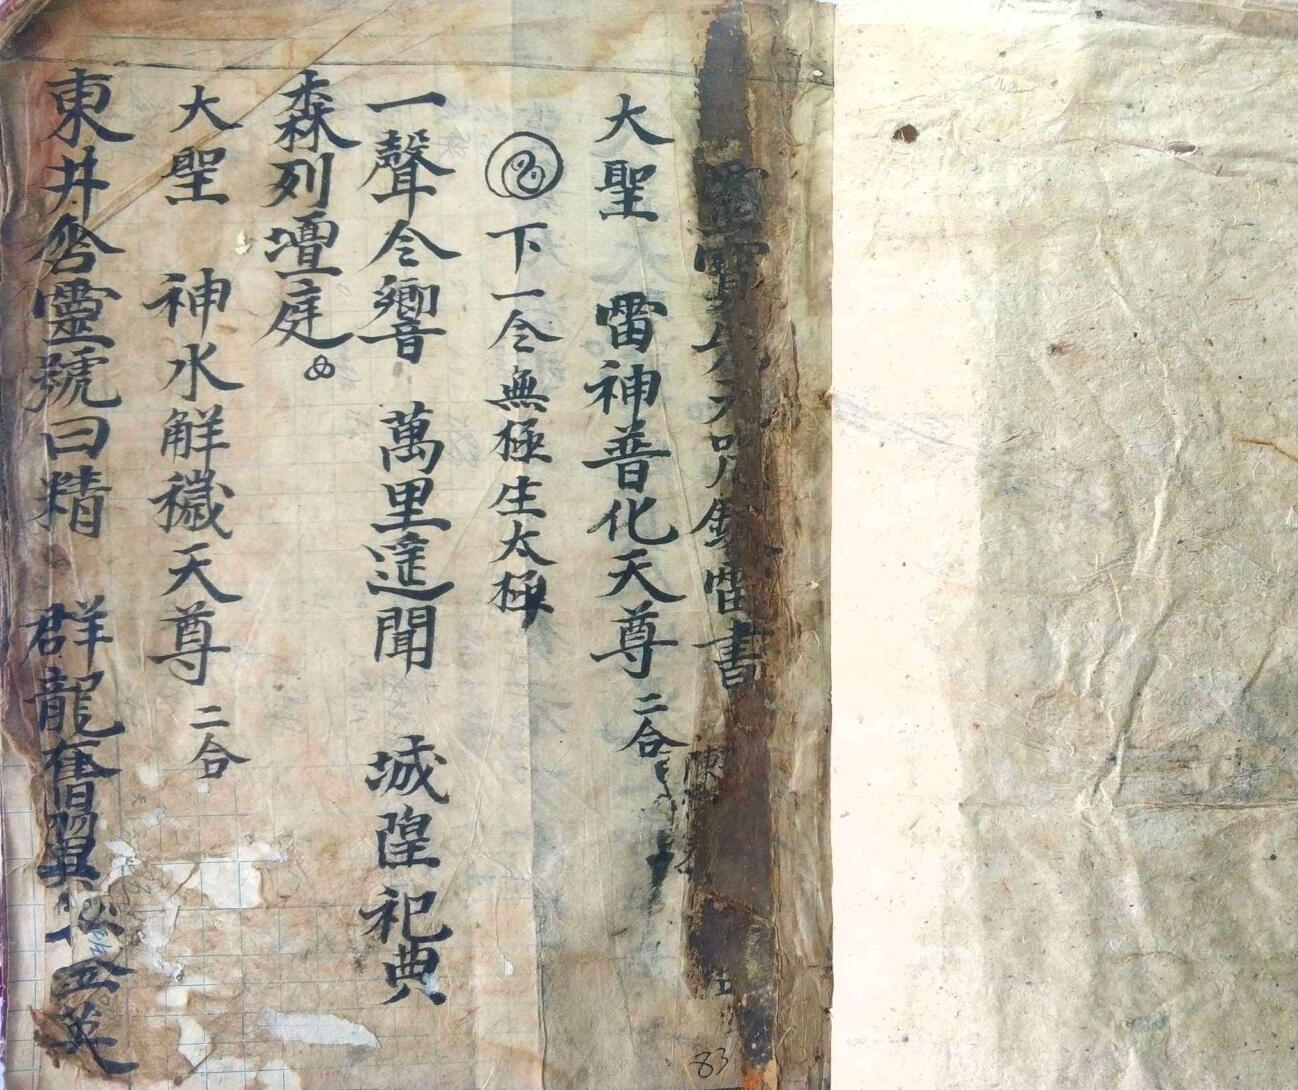 靈寶先天
雷書
大聖 雷神普化天尊 二合
下一令無極生太極
一聲令響 萬里遙聞 城隍祀典
森列壇庭
大聖 神水解穢天尊 二合
東井含靈號曰精 群龍奮翼 英
83